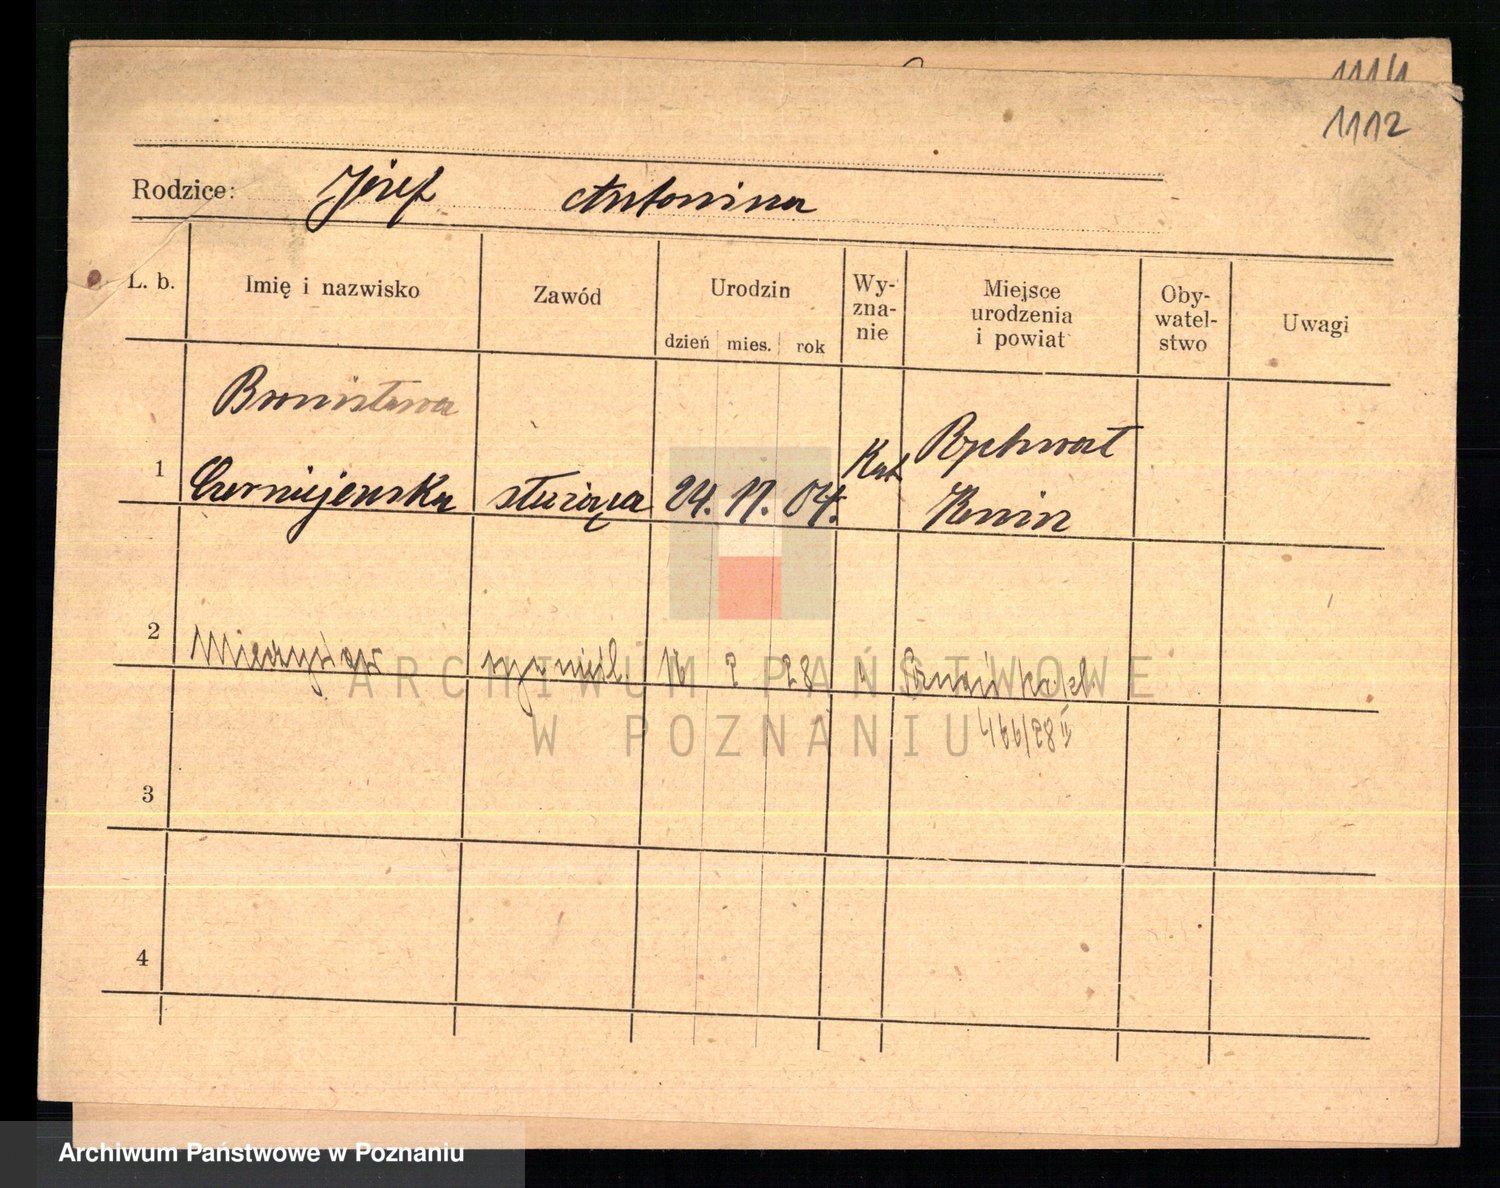 1111
1112
Rodzice: Józef Antonina
L. b. Imię i nazwisko Zawód Urodzin Wy-zna-nie Miejsce urodzenia i powiat Oby-watel-stwo Uwagi
dzień mies. rok
Bronisława
1 Czerniejewska służąca 24. 11. 04. Kat Rychwał
Konin
2 Mieczysław 16 2 28
ARCHIWUM PAŃSTWOWE
W POZNANIU
3
4
Archiwum Państwowe w Poznaniu